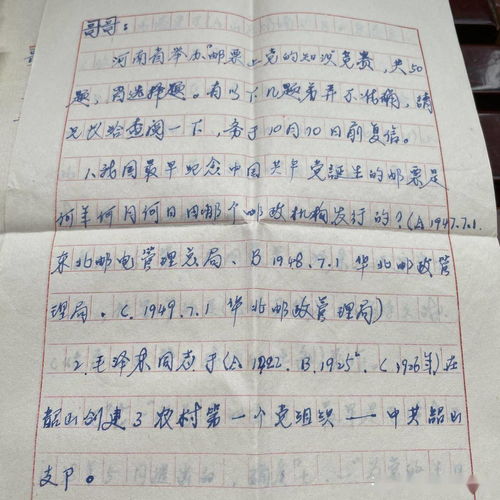 哥哥：
河南省举办"邮票上党的知识竞赛，共50
题，為选择题。有以下几题看弄不准确，请
兄长给查阅一下，务于10月10日前复信。
1.我国最早纪念中国共产党誕生的邮票是
何年何月何日由哪个邮政机构发行的？(A 1947.7.1.
东北邮电管理总局、B 1948.7.1 华北邮政管
理局。C.1949.7.1 华北邮政管理局)
2.毛泽东同志于(A 1922. B.1925 C 1926年)在
韶山创建了农村第一个党组织——中共韶山
支部。